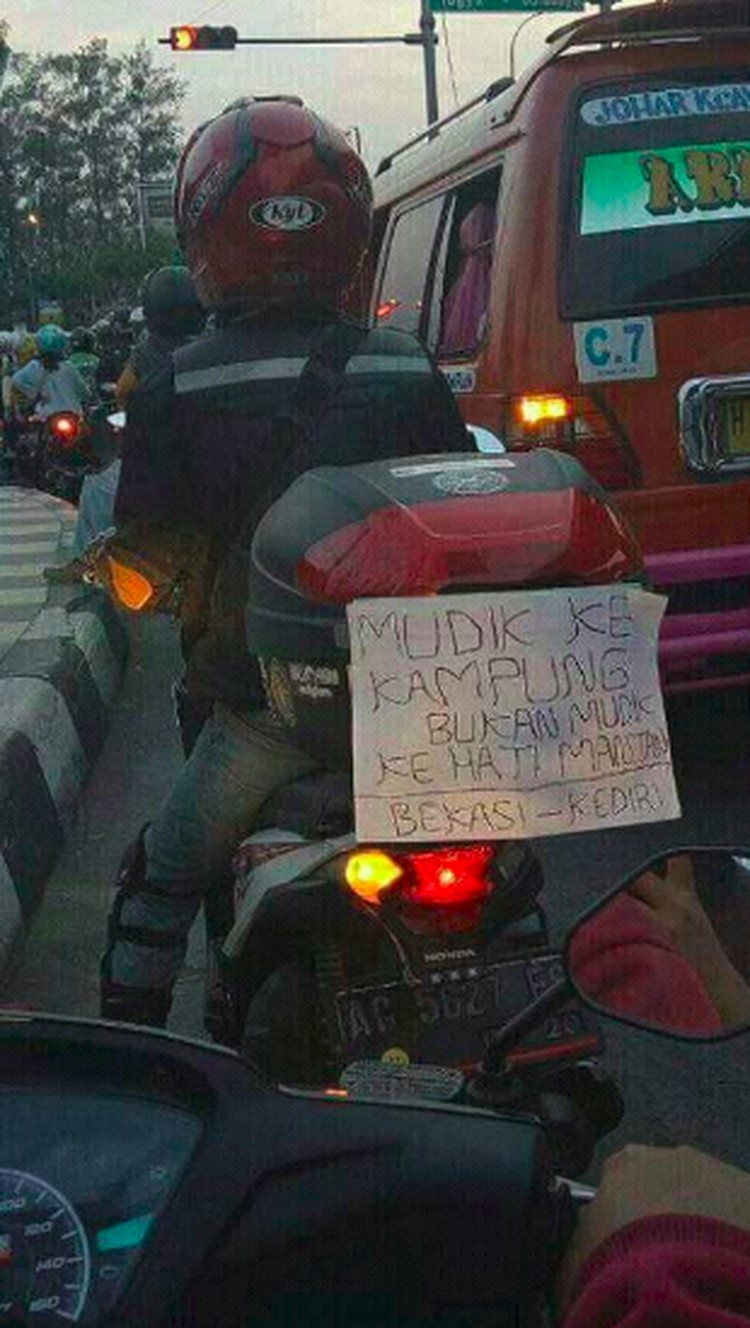 JOHAR
KYT
C.7
MUDIK KE
KAMPUNG
BUKAN MUDIK
KE HATI MANTAN
BEKASI - KEDIRI
HONDA
AG 5627
120
140
160